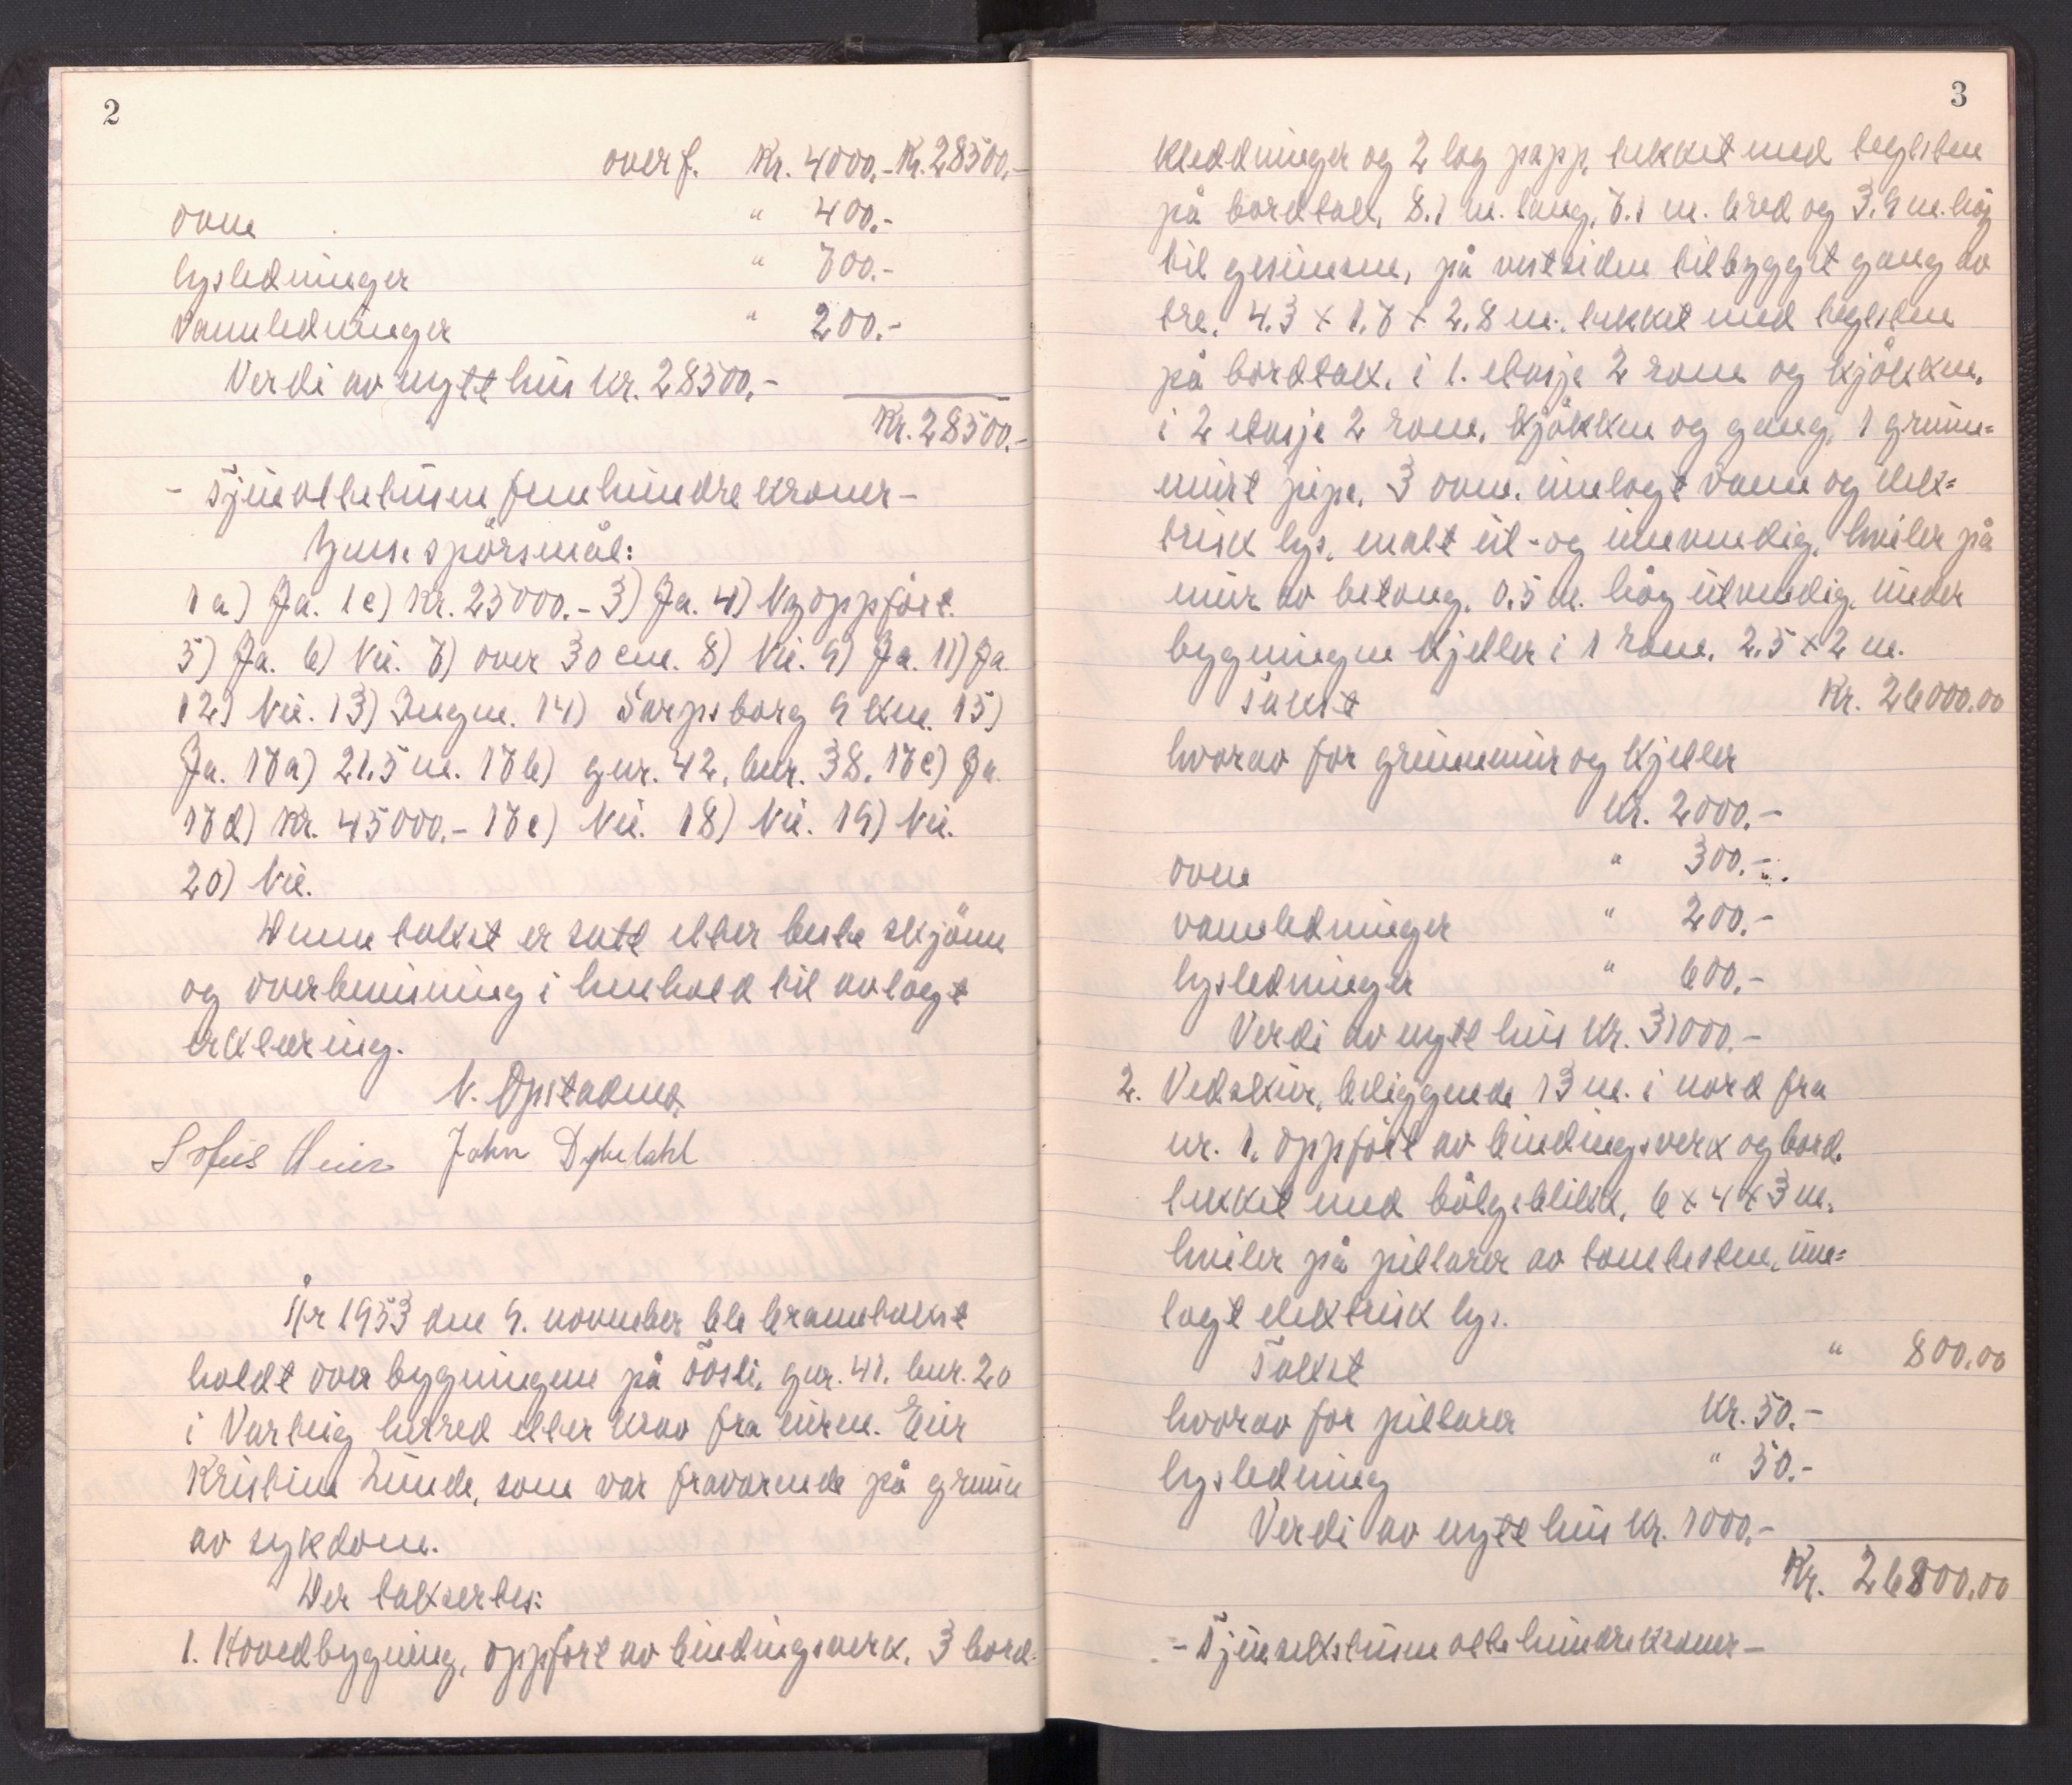 2
overf. Kr. 4000.- Kr. 28500.-
ovne " 400.-
lysledninger " 700.-
Vannledninger " 200.-
Verdi av nytt hus kr. 28500.-
Kr. 28500.-
- Tjueåttetusen femhundre kroner -
Ymse spörsmål:
1a) Ja. 1c) Kr. 25000.- 3) Ja. 4) Nyoppfört.
5) Ja. 6) Nei. 7) over 30 cm. 8) Nei. 9) Ja. 11) Ja
12) Nei. 13) Ingen. 14) Sarpsborg 9 km. 15)
Ja. 17a) 21.5 m. 17b) gnr. 42, bnr. 38. 17c) Ja.
17d) Kr. 45000.- 17e) Nei. 18) Nei. 19) Nei.
20) Nei.
Denne takst er satt etter beste skjönn
og overbevisning i henhold til avlagt
erklæring.
N. Opstad
John Dybdahl
År 1953 den 9. november ble branntakst
holdt over bygningene på Tösli, gnr. 41. bnr. 20
i Varteig herred etter krav fra eieren. Enir
Kristine Lunde, som var fraværende på grunn
av sykdom.
Der taksertes:
1. Hovedbygning, oppfört av bindingsverk, 3 bord-
3
kledninger og 2 lag papp, tekket med teglsten
på bordtak, 8.1 m. lang, 7.1 m. bred og 3.9 m. höy
til gesimsen, på vestsiden tilbygget gang av
tre, 4.3 x 1.7 x 2.8 m., tekket med teglsten
på bordtak, i 1. etasje 2 rom og kjökken,
i 2 etasje 2 rom, kjökken og gang, 1 grunn=
murt pipe, 3 ovne, innlagt vann og elek=
trisk lys, malt ut- og innvendig, hviler på
mur av betong, 0.5 m. höy utvendig, under
bygningen kjeller i 1 rom, 2.5 x 2 m.
Takst Kr. 26000.00
hvorav for grunnmur og kjeller
Kr. 2000.-
ovne " 300.-
vannledninger " 200.-
lysledninger " 600.-
Verdi av nytt hus kr. 31000.-
2. Vedskur, beliggende 13 m. i nord fra
nr. 1, oppfört av bindingsverk og bord,
tekket med bölgeblikk, 6 x 4 x 3 m.,
hviler på pillarer av tomtesten, inn=
lagt elektrisk lys.
Takst " 800.00
hvorav for pillarer Kr. 50.-
lysledning " 50.-
Verdi av nytt hus kr. 1000.-
Kr. 26800.00
- Tjuesekstusen åtte hundre kroner -